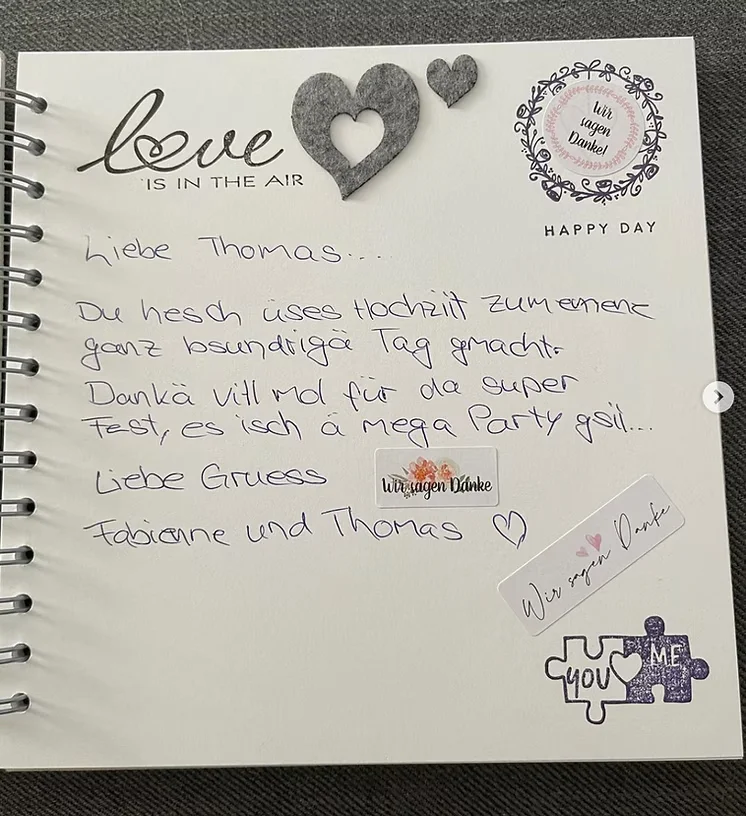 love
IS IN THE AIR
Wir
sagen
Danke!
HAPPY DAY
Liebe Thomas...
Du hesch üses Hochziit zum emene
ganz bsundrigä Tag gmacht.
Dankä vill mol für da super
Fest, es isch ä mega Party gsii...
Liebe Gruess
Wir sagen Danke
Fabienne und Thomas ♡
Wir sagen Danke
YOU ME